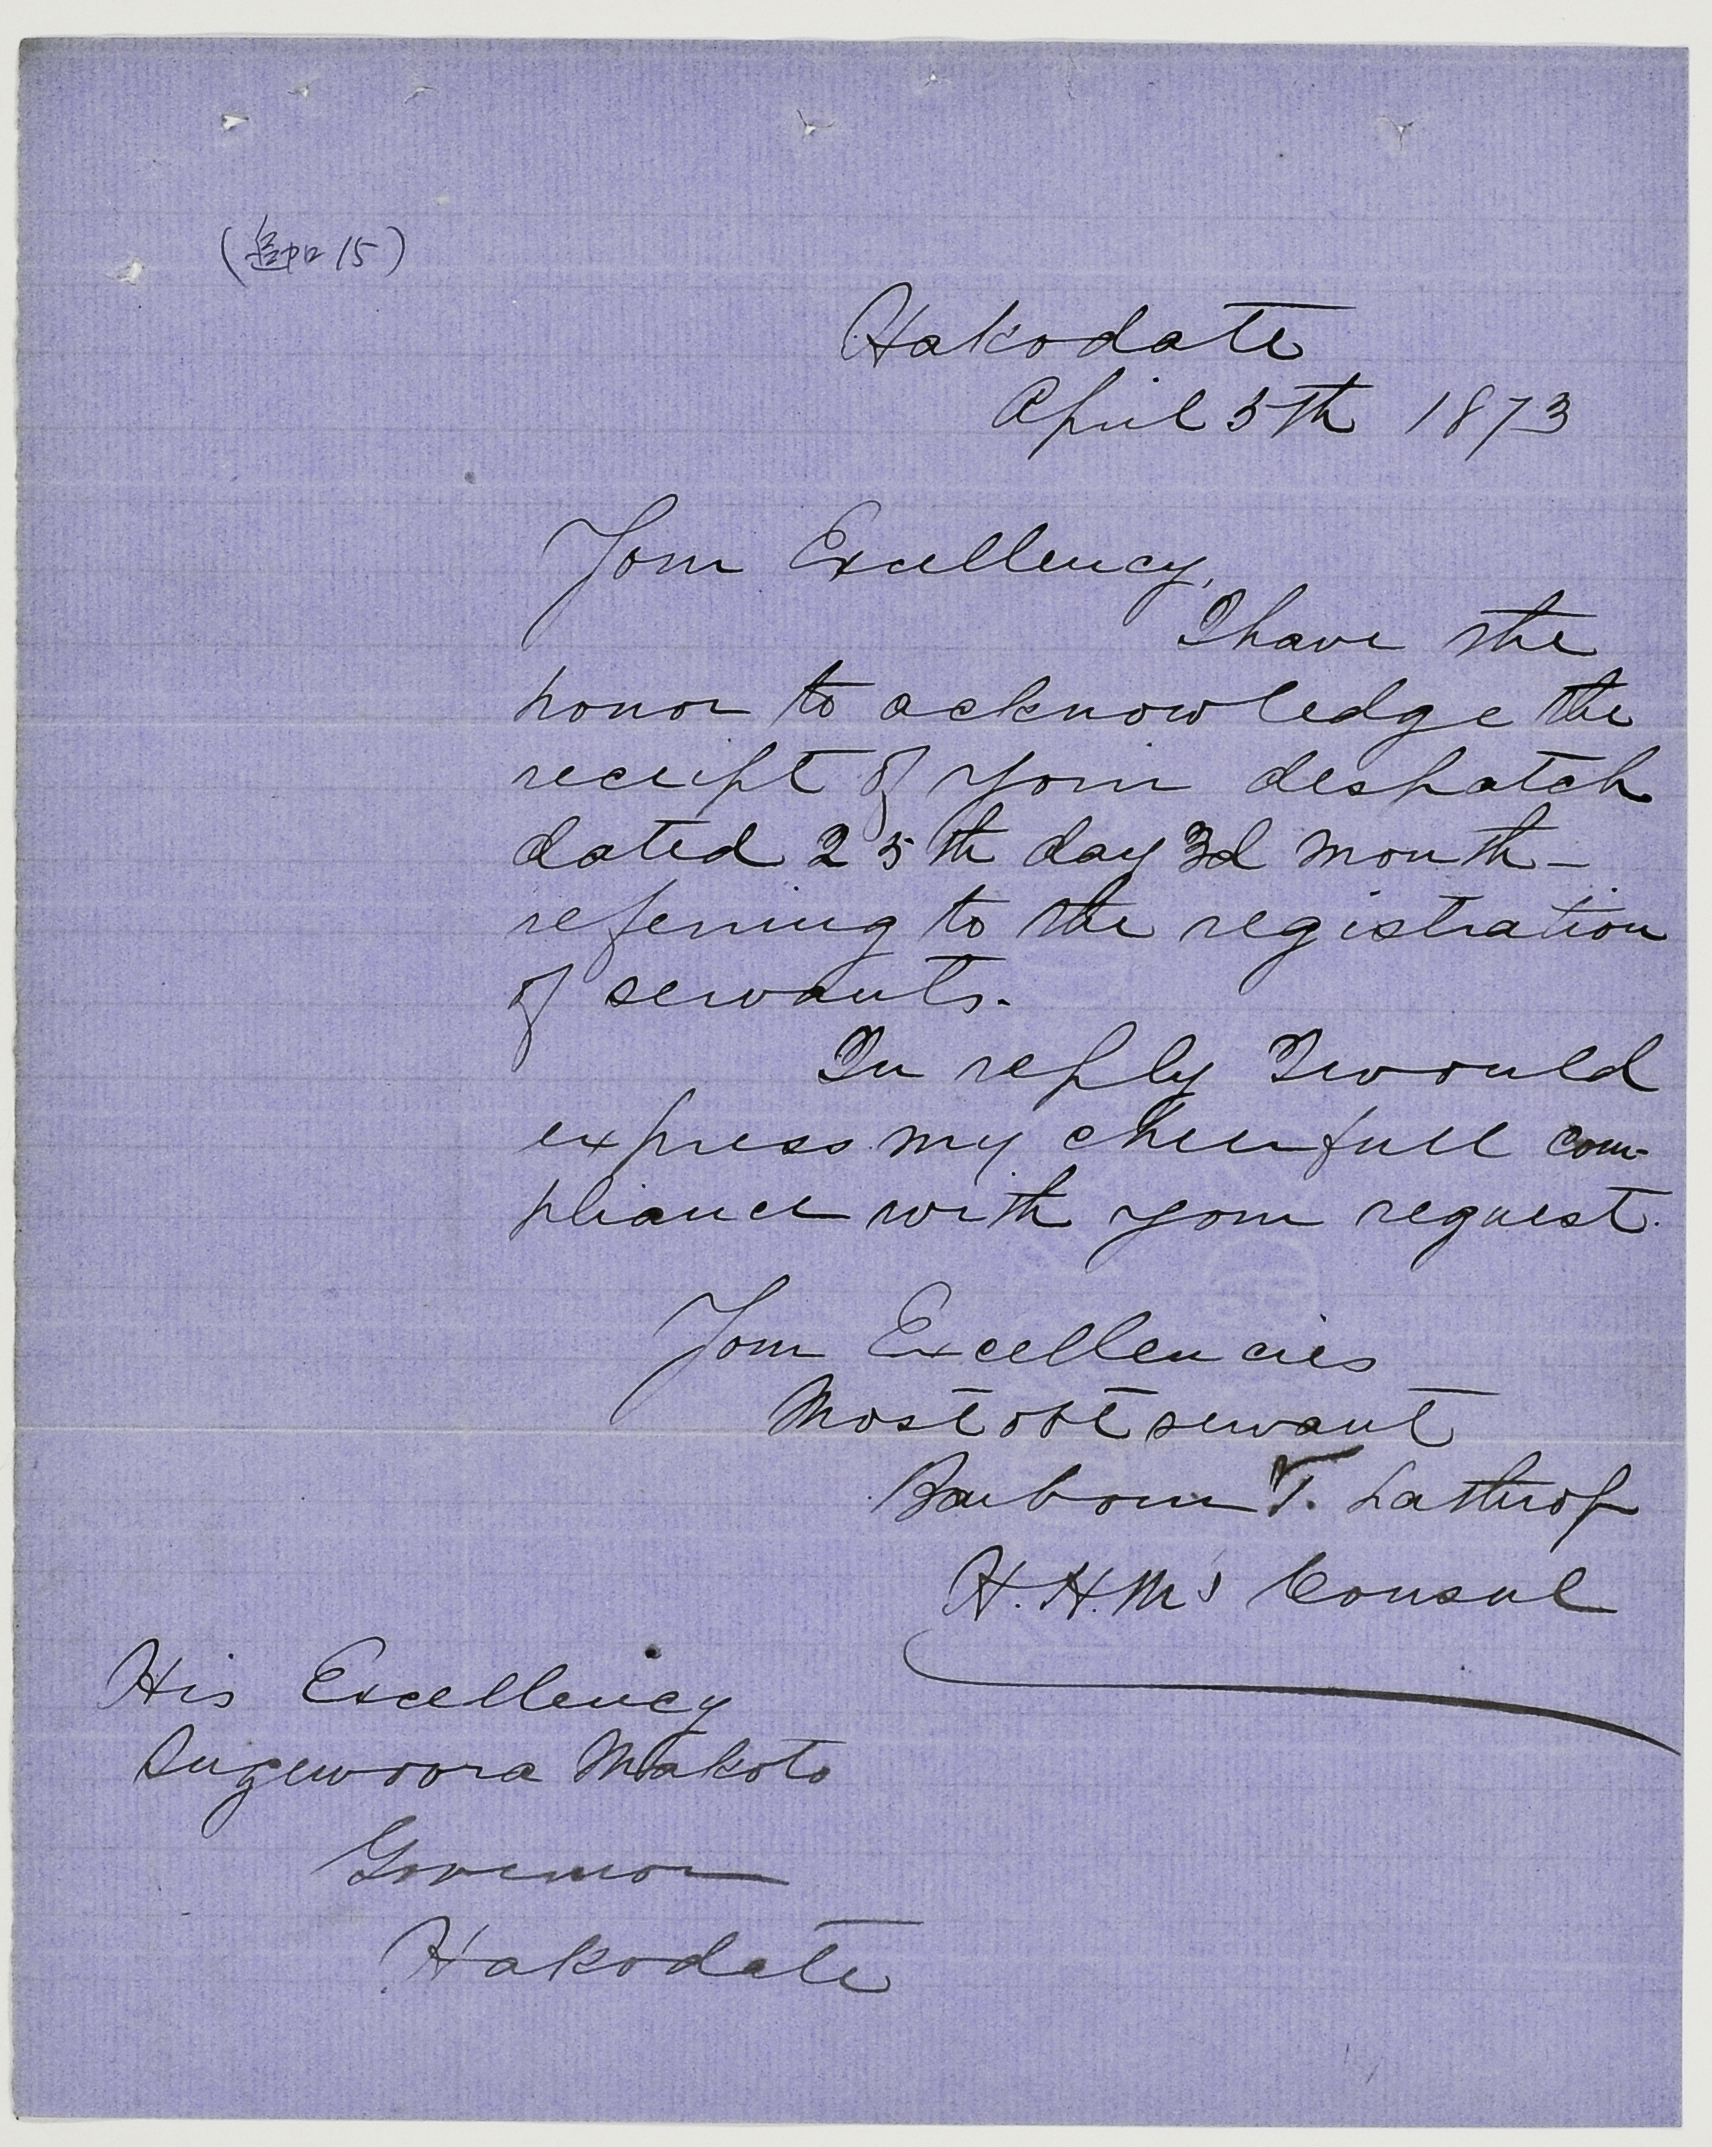 (追加15)
Hakodate
April 5th 1873
Your Excellency,
I have the
honor to acknowledge the
receipt of your despatch
dated 25th day 3d month—
referring to the registration
of servants.
In reply I would
express my cheerfull com-
pliance with your request.
Your Excellencies
Most obt servant
Barbour T. Lathrop
H.H.M's Consul
His Excellency
Sugewoora Makoto
Governor
Hakodate